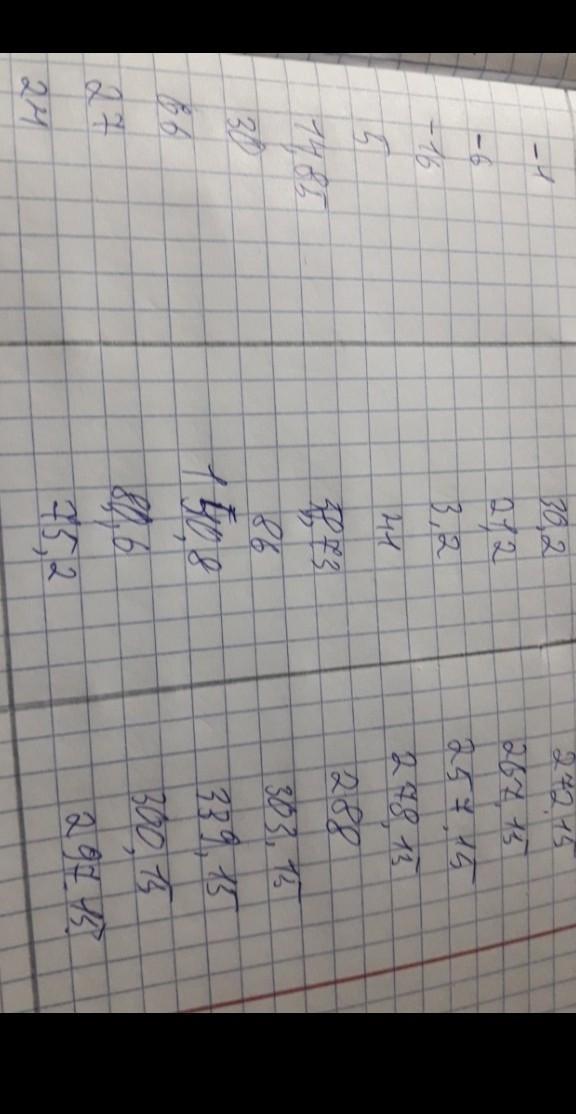 -1 30,2 272,15
-6 21,2 267,15
-16 3,2 257,15
5 41 278,15
14,85 58,73 288
30 86 303,15
66 150,8 339,15
27 80,6 300,15
24 75,2 297,15